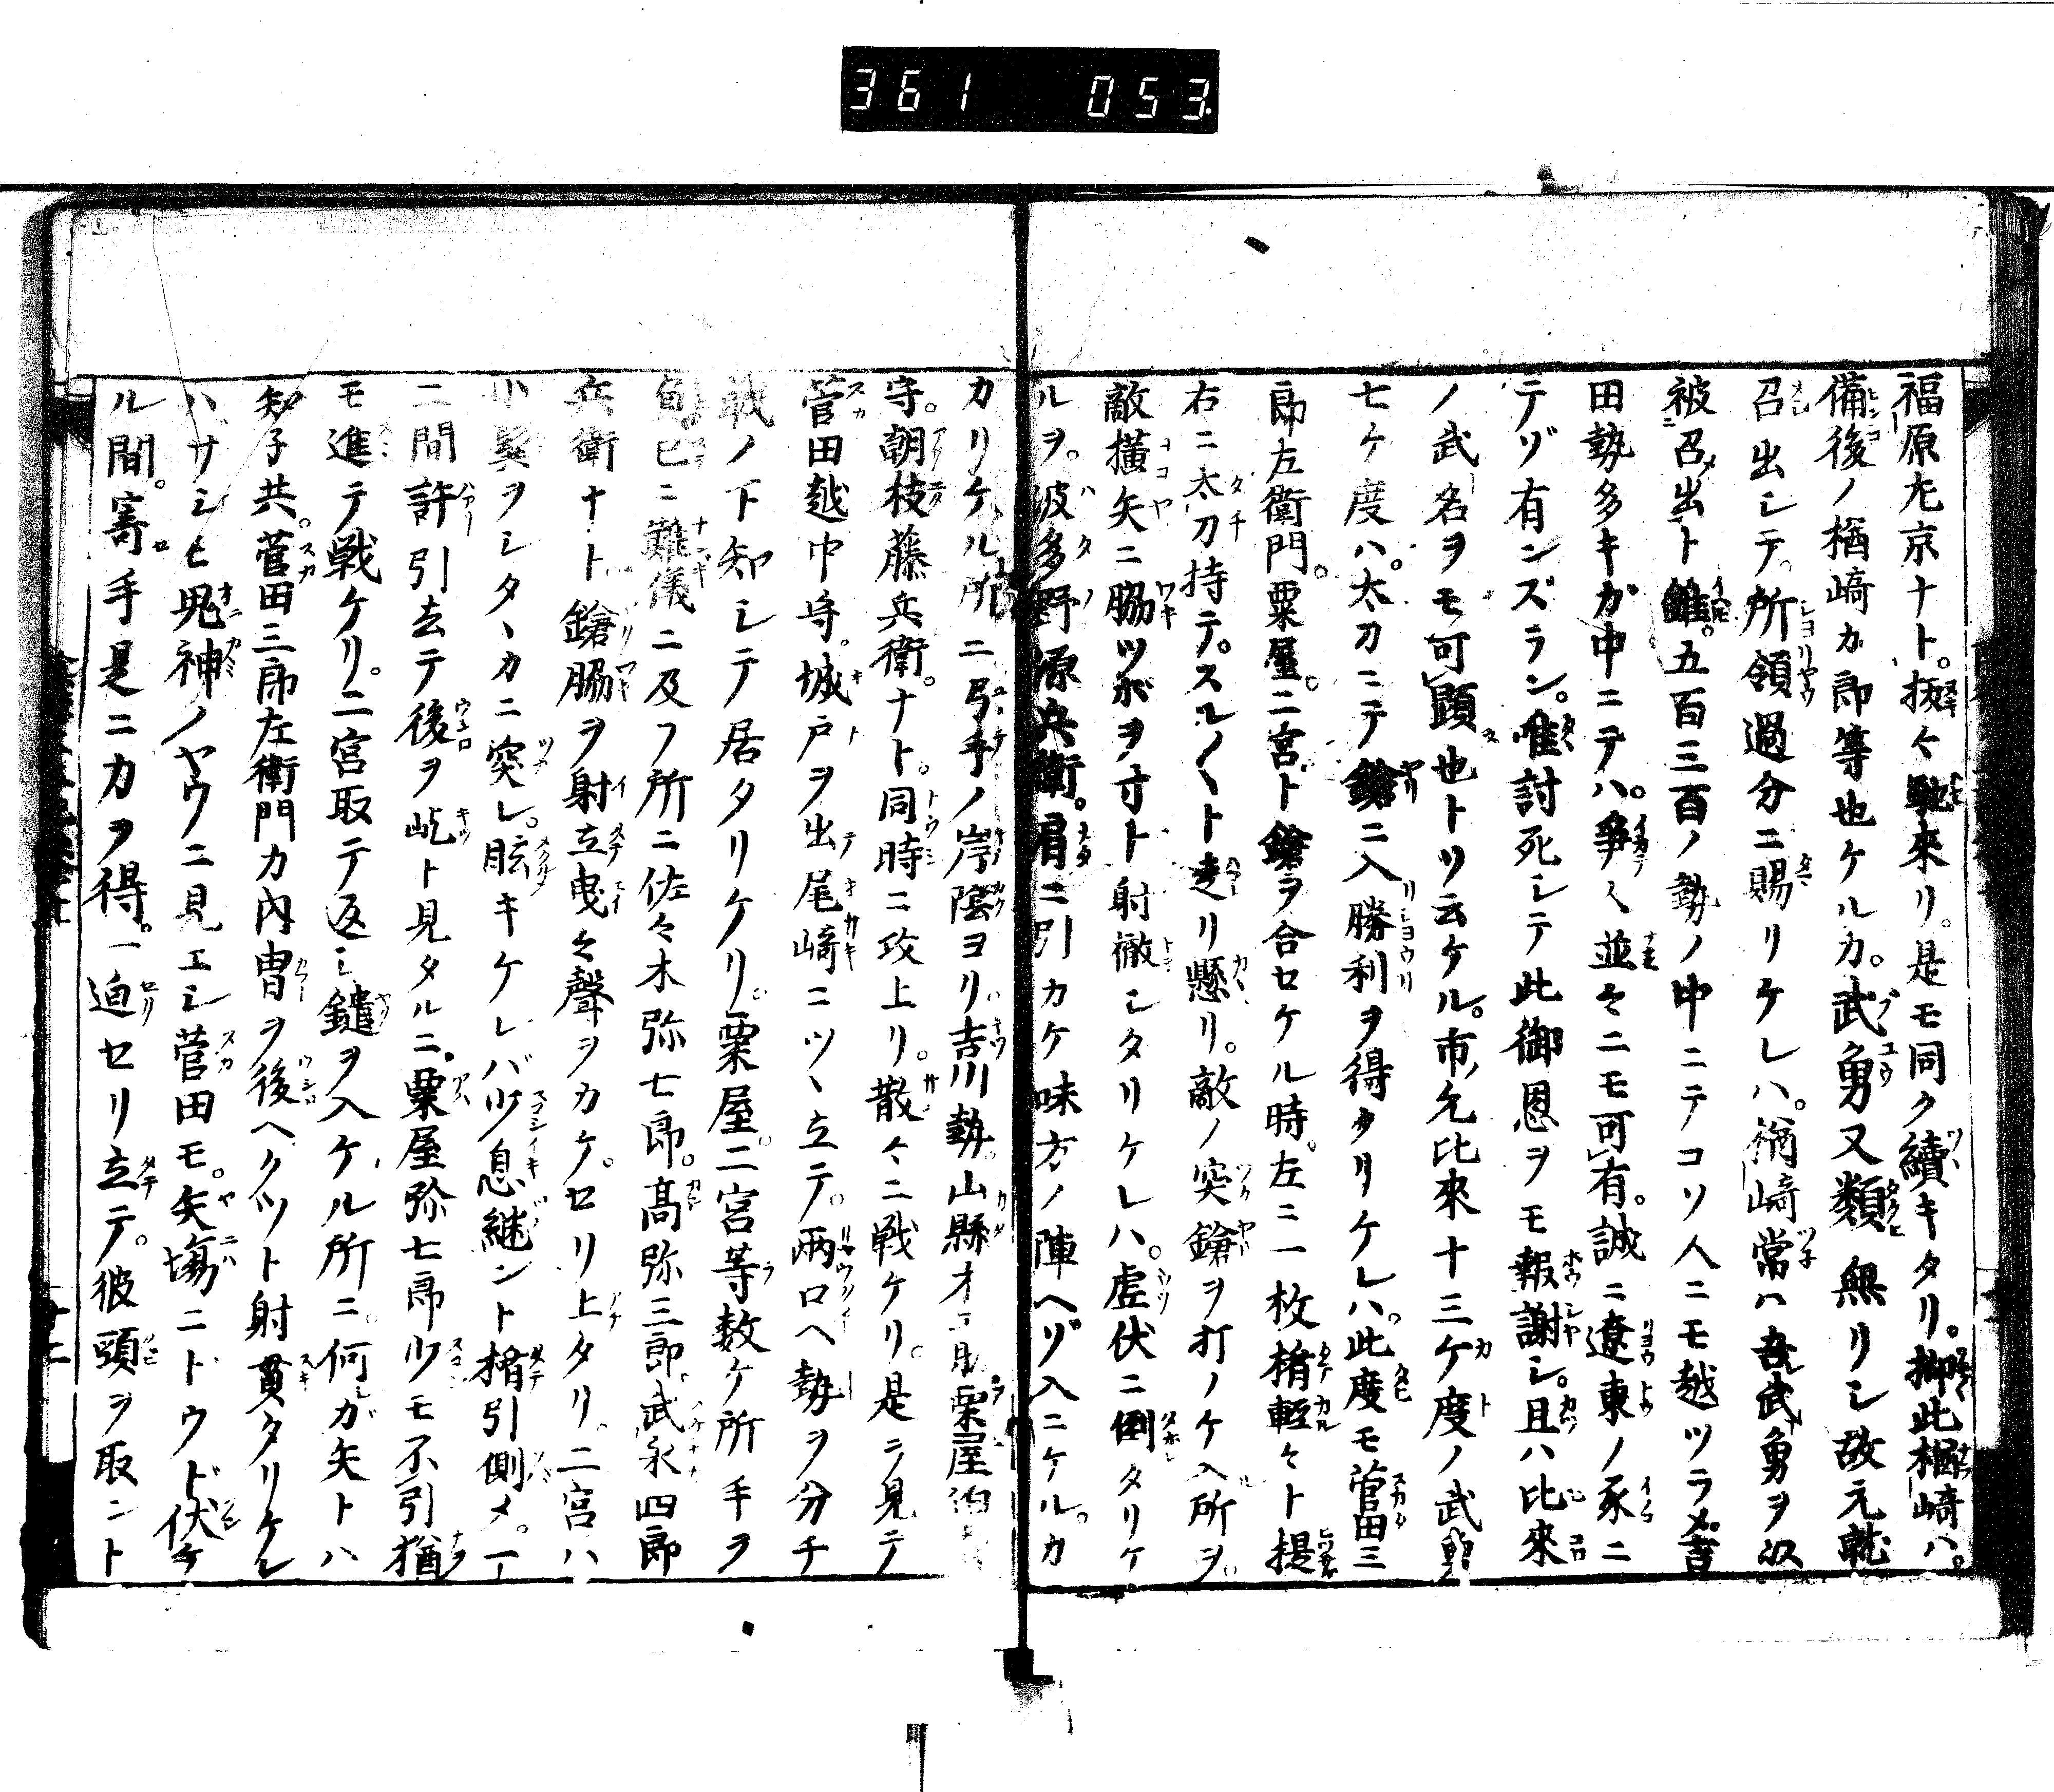 361 053
福原左京ナト。抜々馳來リ。是モ同ク續キタリ。抑此楢崎ハ。
備後ノ楢崎カ郎等也ケルカ。武勇又類無リシ故元就
召出シテ。所領過分ニ賜リケレハ。楢崎常ハ吾武勇ヲ以
被召出ト雖。五百三百ノ勢ノ中ニテコソ人ニモ越ツラメ。吉
田勢多キガ中ニテハ。爭く並々ニモ可有。誠ニ遼東ノ豕ニ
テゾ有ンズラン。唯討死シテ此御恩ヲモ報謝シ。且ハ比來
ノ武名ヲモ可顕也トソ云ケル。市允比來十三ケ度ノ武勲
七ケ度ハ。太刀ニテ鎗ニ入勝利ヲ得タリケレハ。此度モ菅田三
郎左衛門。粟屋。二宮ト鎗ヲ合セケル時。左ニ一枚楯輕々ト提
右ニ太刀持テ。スルヽト走リ懸リ。敵ノ突鎗ヲ打ノケ入所ヲ。
敵横矢ニ脇ツボヲ寸ト射徹シタリケレハ。虚伏ニ倒タリケ
ルヲ。波多野源兵衛。肩ニ引カケ味方ノ陣ヘゾ入ニケル。カ
カリケル所ニ弓手ノ岸陰ヨリ。吉川勢。山縣 粟屋伯
守。朝枝藤兵衛。ナト。同時ニ攻上リ。散々ニ戦ケリ。是ヲ見テ
菅田越中守。城戸ヲ出尾崎ニツヽ立テ。兩口ヘ勢ヲ分チ
戦ノ下知シテ居タリケリ。粟屋。二宮等数ケ所手ヲ
負。已ニ難儀ニ及フ所ニ佐々木弥七郎。髙弥三郎武永四郎
兵衛ナト鎗脇ヲ射立曳々聲ヲカケ。セリ上タリ。二宮ハ
小 ヲシタヽカニ突レ。眩キケレバ少息継ント楯引側メ。一
二間許引去テ後ヲ屹ト見タルニ。粟屋弥七郎少モ不引猶
モ進テ戦ケリ。二宮取テ返シ鑓ヲ入ケル所ニ何ガ矢トハ
知子共。菅田三郎左衛門カ内冑ヲ後ヘクツト射貫タリケレ
ハサシモ鬼神ノヤウニ見エシ菅田モ。矢塲ニドウド伏ケ
ル間。寄手是ニカヲ得。一迫セリ立テ。彼頭ヲ取ント